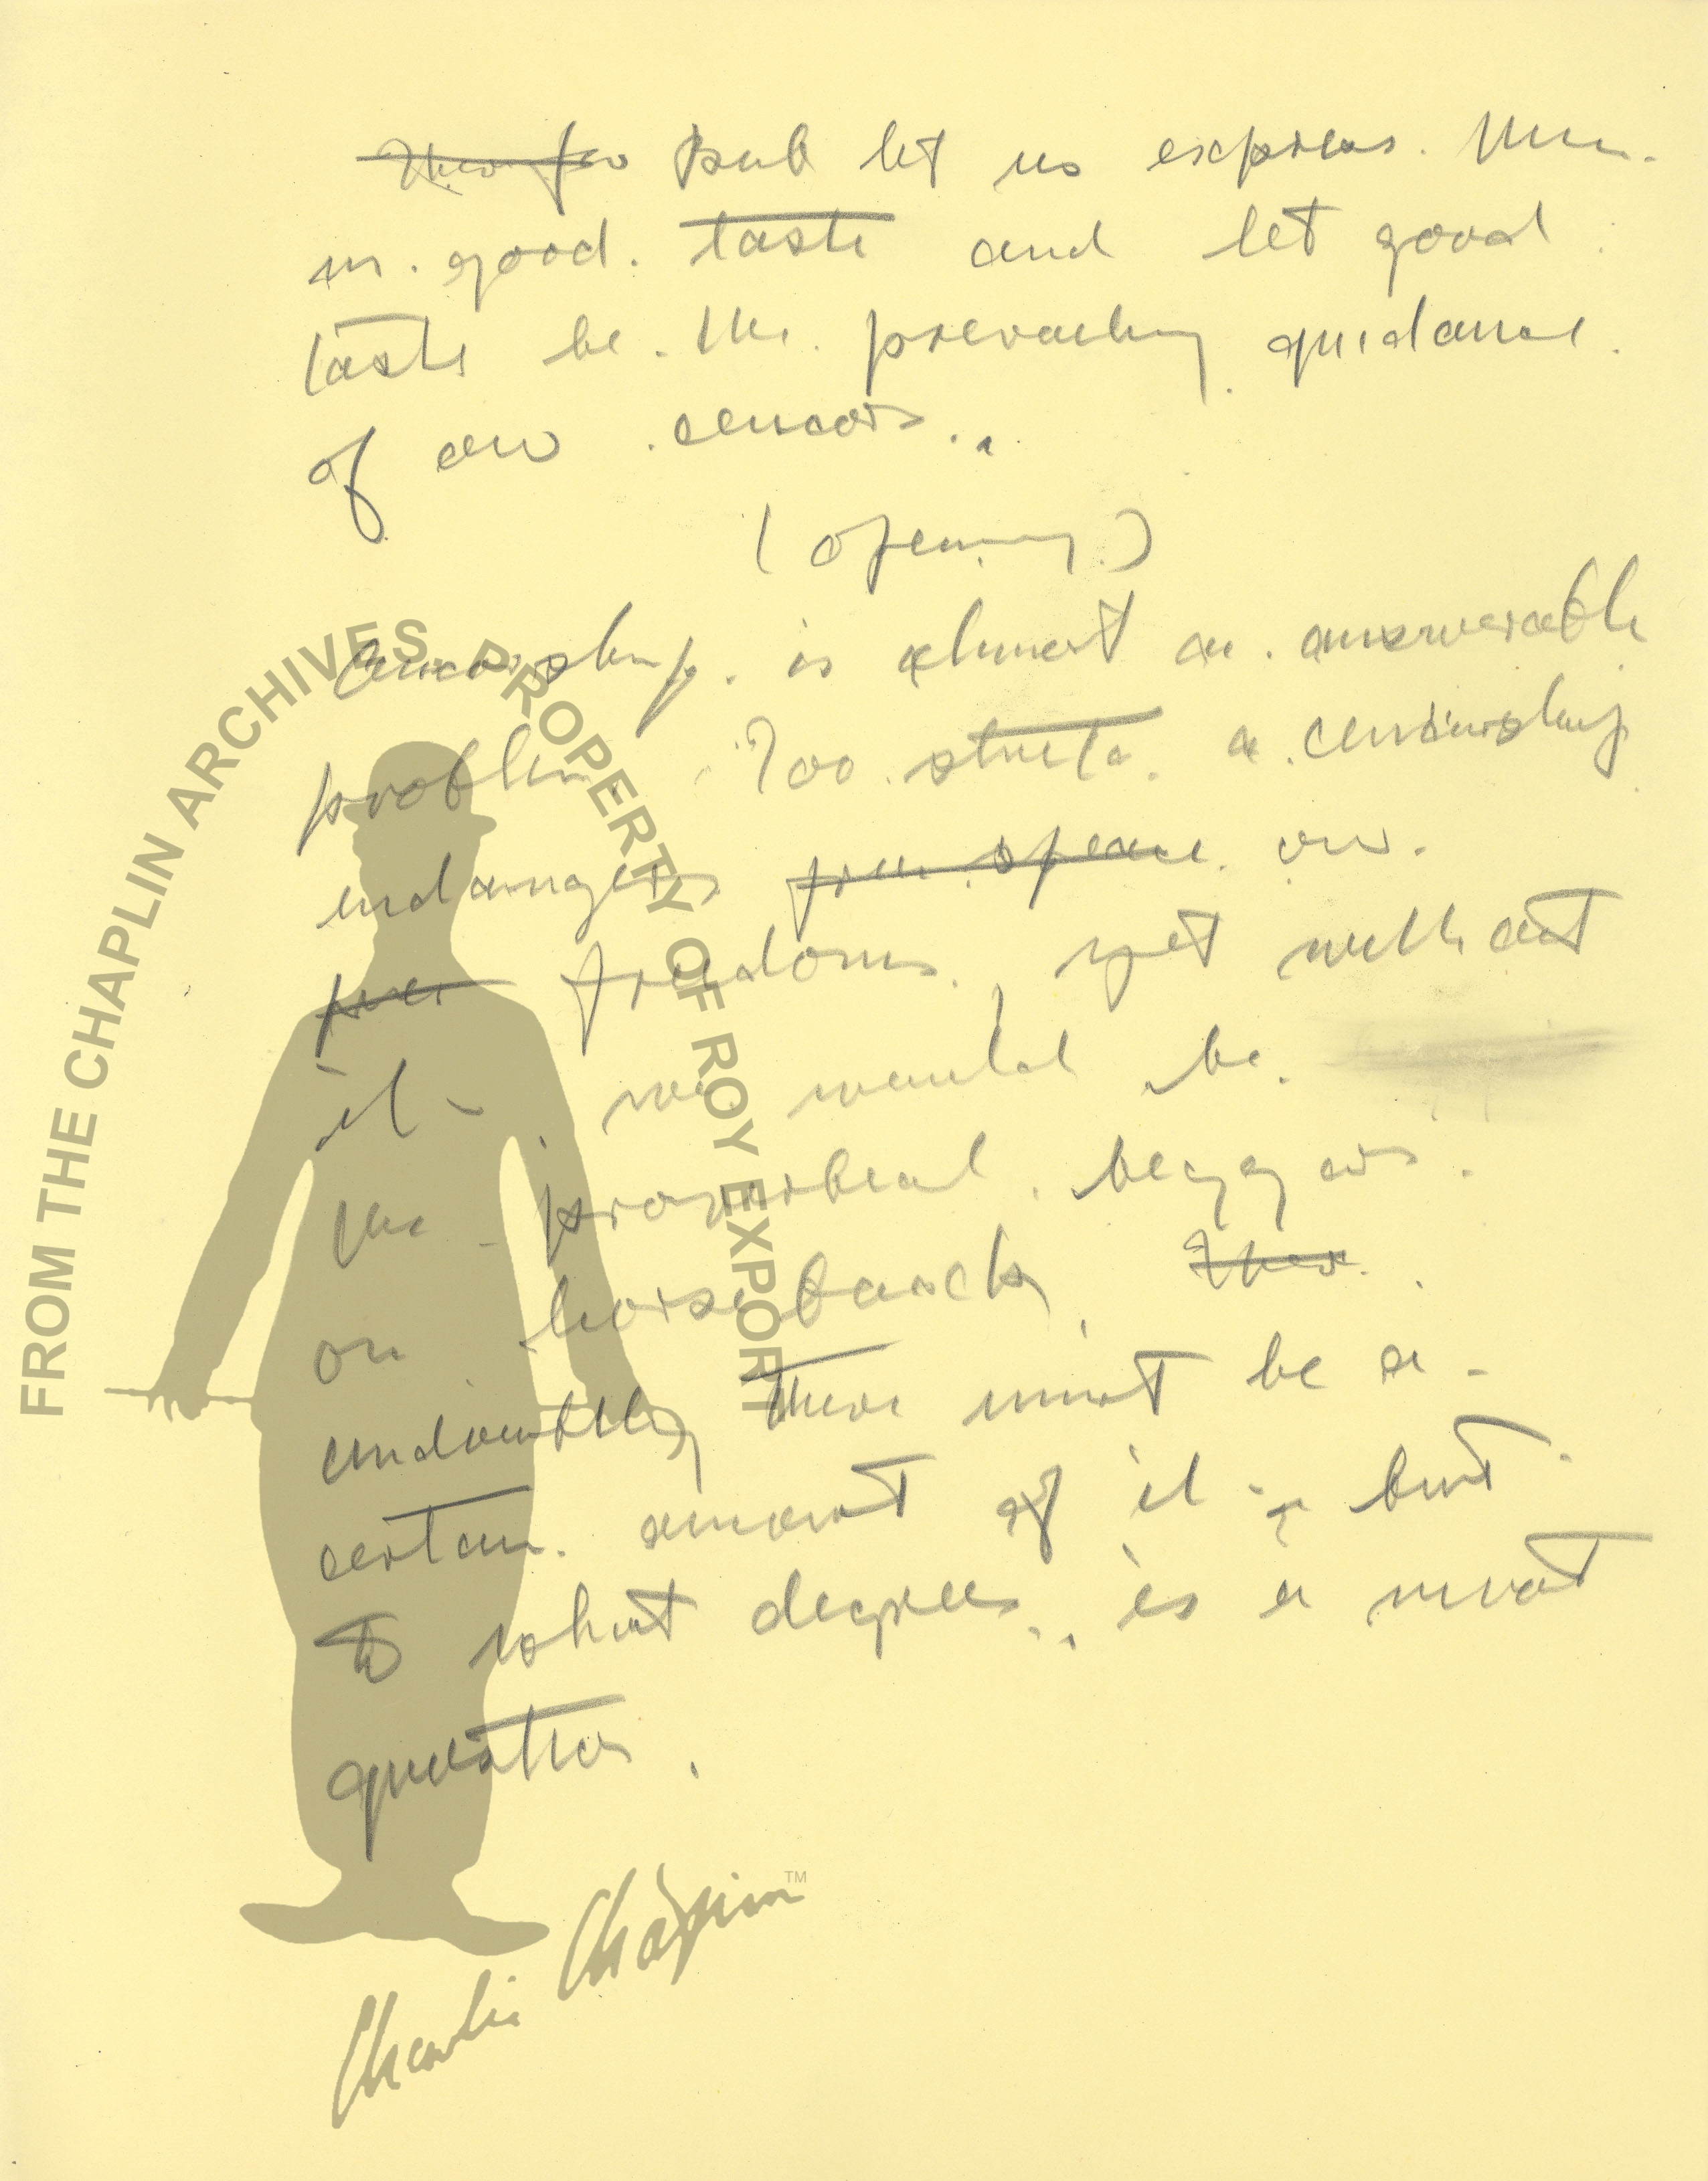 But let us express them
in good. taste and let good
taste be. the. prevailing guidance.
of our censors..
(opening)
Censorship. is almost an. answerable
problem. Too strict. a censorship
endangers free speech. our.
freedoms. yet without
it - we would be.
the - proverbial. beggars.
on horseback,
undoubtedly there must be a -
certain. amount of it - but
to what degrees.. is a moot
question.
FROM THE CHAPLIN ARCHIVES. PROPERTY OF ROY EXPORT
Charlie Chaplin™